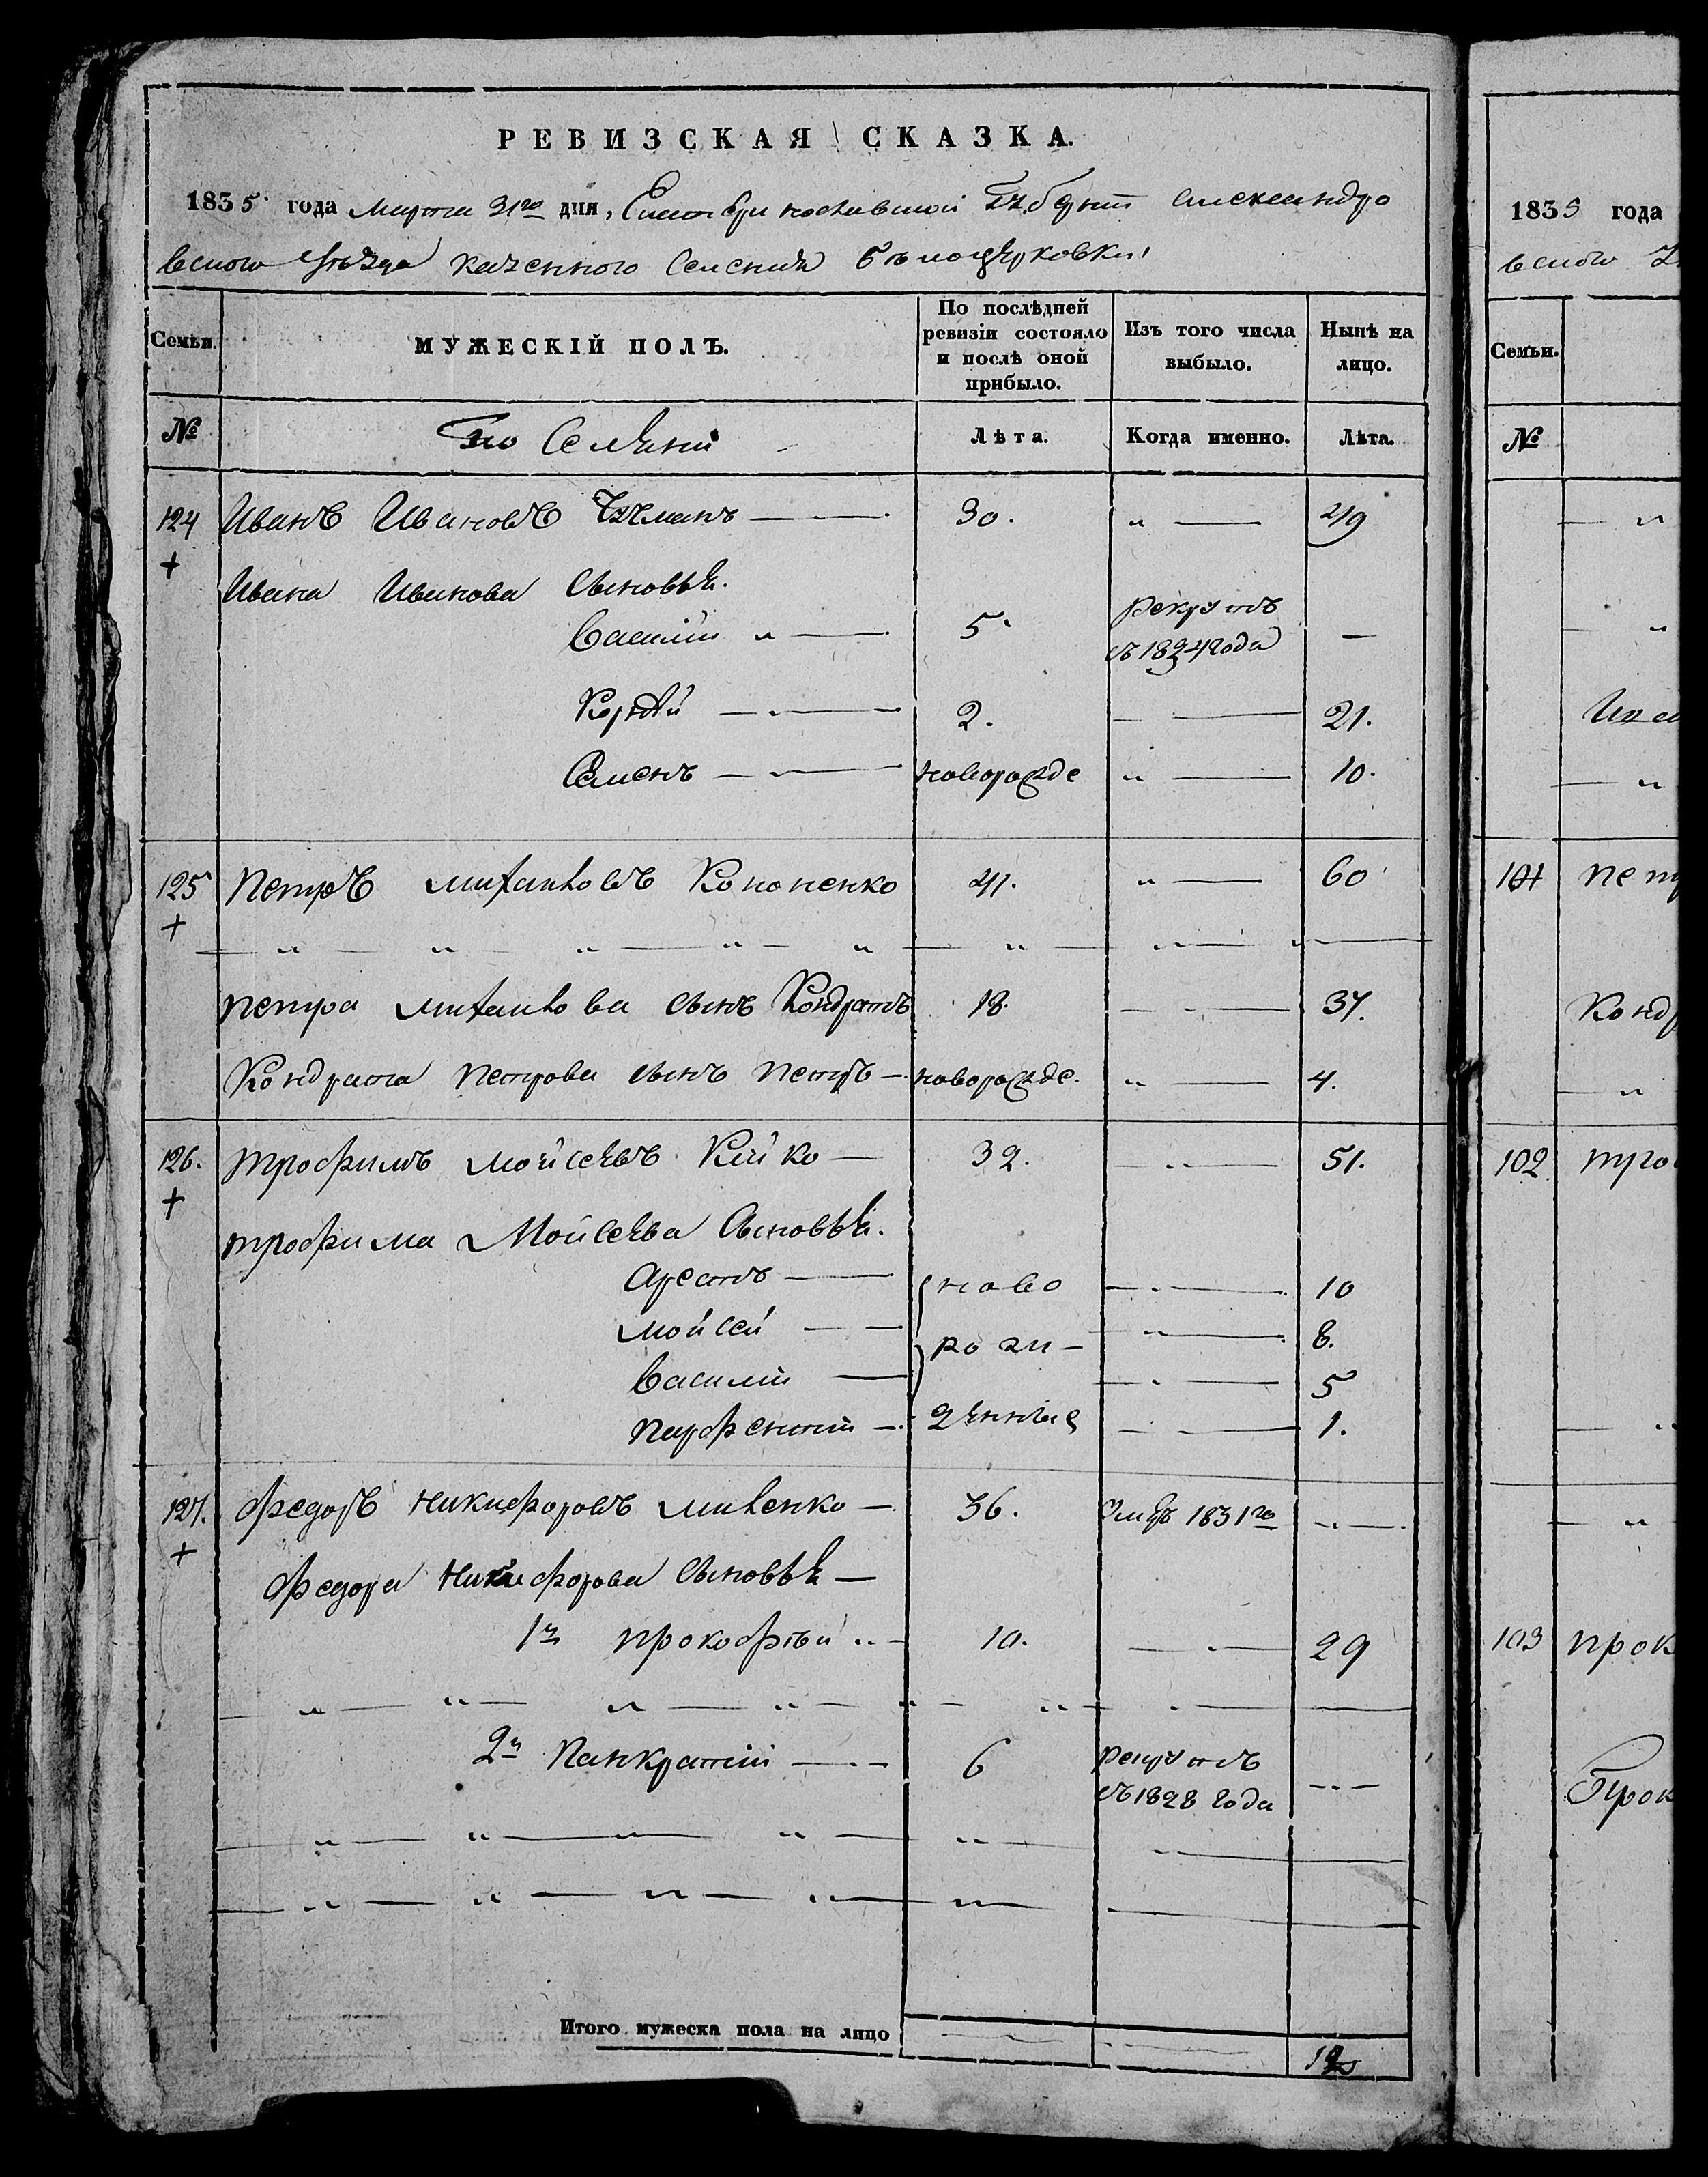 РЕВИЗСКАЯ СКАЗКА.
1835 года Марта 31го дня, Екатеринославской Губерніи Александро
вского Уѣзда казенного Селенія Бѣлоцерковки
Семьи.
МУЖЕСКІЙ ПОЛЪ.
По послѣдней ревизіи состояло и послѣ оной прибыло.
Изъ того числа выбыло.
Нынѣ на лицо.
№
Лѣта.
Когда именно.
Лѣта.
124 Иванъ Ивановъ — 30. „ — 49
+
Ивана Иванова Сыновья.
Василій „ — 5. рекрутъ съ 1824 года —
Корнѣй — 2. — 21.
Семенъ — новорожде „ — 10.
125 Петръ Михайловъ Кононенко 41. „ — 60
+
Петра Михайлова сынъ Кондратъ 18. — 37.
Кондрата Петрова сынъ Петръ — новорожде. „ — 4.
126. Трофимъ Мойсеевъ — 32. — 51.
+
Трофима Мойсеева Сыновья.
Арсетъ — ново — 10
Мойсей — рож — — 8.
Василій — — 5
Парфентій — денные — 1.
127. Федоръ Никифоровъ Мивенко — 36. Умеръ 1831го „ —
+
Федора Никифорова Сыновья —
1й Прокофѣй „ — 10. — 29
2й Панкратій — 6 рекрутъ съ 1828 года —
Итого мужеска пола на лицо
1835 года
вского
Семьи.
№
101 Пет
Конд
102 Тро
103 Прок
Прок